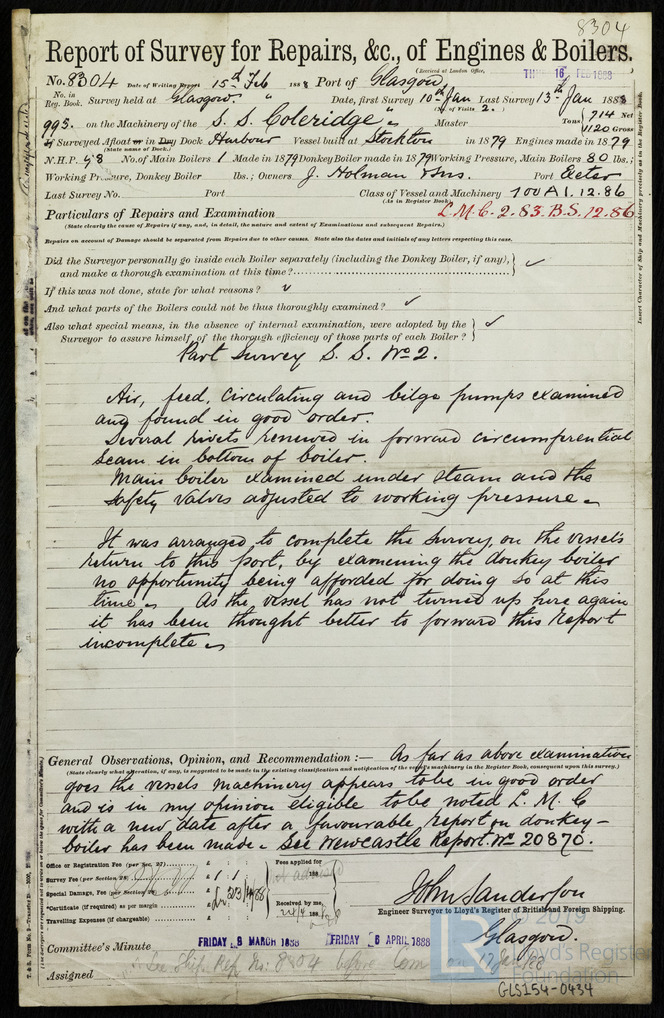 8304
Report of Survey for Repairs, &c., of Engines & Boilers.
(Received at London Office, THU 16 FEB 1888
No. 8304 Date of Writing Report 15th Feb 1888 Port of Glasgow
No. in Reg. Book. Survey held at Glasgow. Date, first Survey 10th Jan Last Survey 13th Jan 1888
(No. of Visits 2.)
995. on the Machinery of the S. S. Coleridge Master Tons 714 Net 1120 Gross
If Surveyed Afloat or in Dry Dock Harbour Vessel built at Stockton in 1879 Engines made in 1879
(State name of Dock.)
N.H.P. 98 No. of Main Boilers 1 Made in 1879 Donkey Boiler made in 1879 Working Pressure, Main Boilers 80 lbs.;
Working Pressure, Donkey Boiler lbs.; Owners J. Holman & Sons. Port Exeter
Last Survey No. Port Class of Vessel and Machinery 100 A1. 12.86
(As in Register Book)
Particulars of Repairs and Examination L.M.C. 2.83. B.S. 12.86
(State clearly the cause of Repairs if any, and, in detail, the nature and extent of Examinations and subsequent Repairs.)
Repairs on account of Damage should be separated from Repairs due to other causes. State also the dates and initials of any letters respecting this case.
Did the Surveyor personally go inside each Boiler separately (including the Donkey Boiler, if any),
and make a thorough examination at this time? ✓
If this was not done, state for what reasons? ✓
And what parts of the Boilers could not be thus thoroughly examined? ✓
Also what special means, in the absence of internal examination, were adopted by the
Surveyor to assure himself of the thorough efficiency of those parts of each Boiler? ✓
Part Survey S. S. No 2.
Air, feed, circulating and bilge pumps examined
and found in good order.
Several rivets renewed in forward circumferential
seam in bottom of boiler.
Main boiler examined under steam and the
safety valves adjusted to working pressure.
It was arranged to complete the survey, on the vessels
return to this port, by examining the donkey boiler
no opportunity being afforded for doing so at this
time. As the vessel has not turned up here again
it has been thought better to forward this report
incomplete.
General Observations, Opinion, and Recommendation:— As far as above examination
(State clearly what alteration, if any, is suggested to be made in the existing classification and notification of the vessel's machinery in the Register Book, consequent upon this survey.)
goes the vessels machinery appears to be in good order
and is in my opinion eligible to be noted L. M. C
with a new date after a favourable report on donkey-
boiler has been made. See Newcastle Report No 20870.
Office or Registration Fee (per Sec. 27) £
Survey Fee (per Section 28) £ 1 1
Special Damage, Fee (per Section 28) £
*Certificate (if required) as per margin £
Travelling Expenses (if chargeable) £
Fees applied for
188
Received by me,
188
John Sanderson
Engineer Surveyor to Lloyd's Register of British and Foreign Shipping.
Glasgow.
Committee's Minute FRIDAY 8 MARCH 1888 FRIDAY 6 APRIL 1888
See Ship Rep No: 8304 before Com
Assigned
© 2019
LR
Lloyd's Register
Foundation
GLS154-0434
Insert Character of Ship and Machinery precisely as in the Register Book.